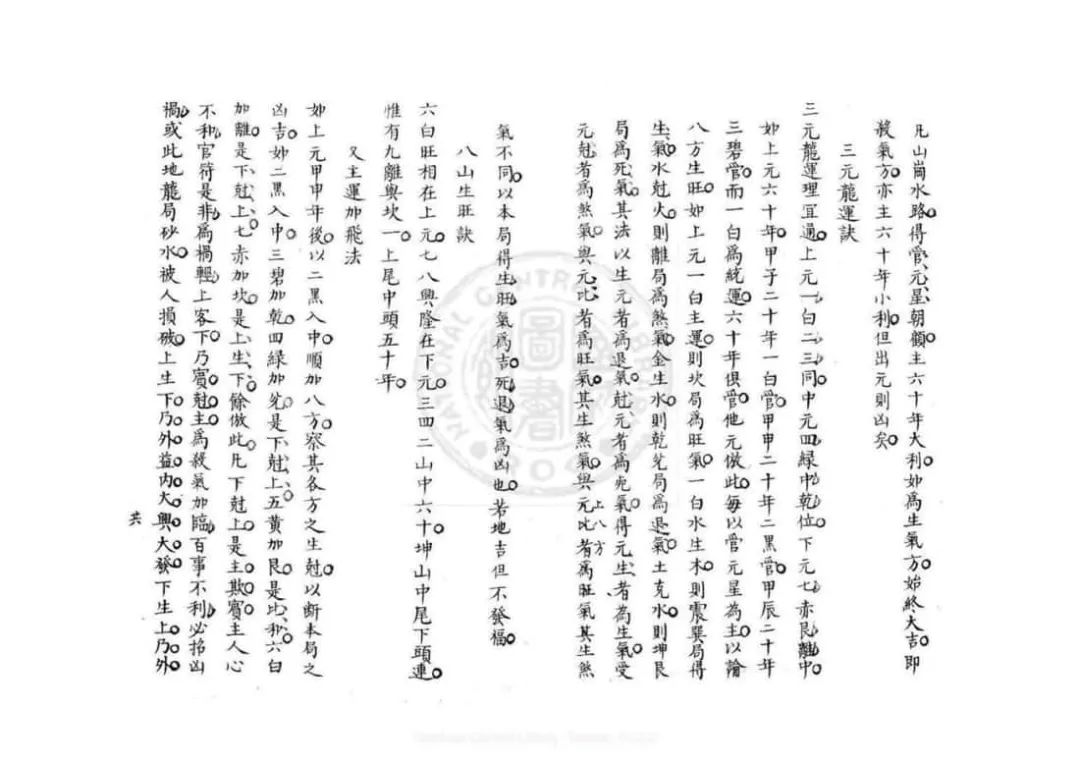 凡山崗水路得管元星朝顧主六十年大利如爲生氣方始終大吉即
煞氣方亦主六十年小利但出元則凶矣
三元龍運訣
三元龍運理宜通上元一白二三同中元四緑中乾位下元七赤艮離中
如上元六十年甲子二十年一白管甲申二十年二黑管甲辰二十年
三碧管而一白爲統運六十年俱管他元倣此每以管元星為主以論
八方生旺如上元一白主運則坎局爲旺氣一白水生木則震巽局得
生氣水尅火則離局爲煞氣金生水則乾兌局爲退氣土克水則坤艮
局爲死氣其法以生元者爲退氣尅元者爲死氣得元生者為生氣受
元尅者爲煞氣與元比者爲旺氣其生煞氣與元比者爲旺氣其生煞
上八方
氣不同以本局得生旺氣爲吉死退氣爲凶也若地吉但不發福
八山生旺訣
六白旺相在上元七八興隆在下元三四二山中六十坤山中尾下頭連
惟有九離與坎一上尾中頭五十年
又主運加飛法
如上元甲申年後以二黑入中順加八方察其各方之生尅以斷本局之
凶吉如二黑入中三碧加乾四緑加兌是下尅上五黄加艮是比和六白
加離是下尅上七赤加坎是上生下餘倣此凡下尅上是主欺賓主人心
不和官符是非爲禍輕上客下乃賓尅主爲殺氣加臨百事不利必招凶
禍或此地龍局砂水被人損破上生下乃外益内大興大發下生上乃外
共
NATIONAL CENTRAL LIBRARY
圖書